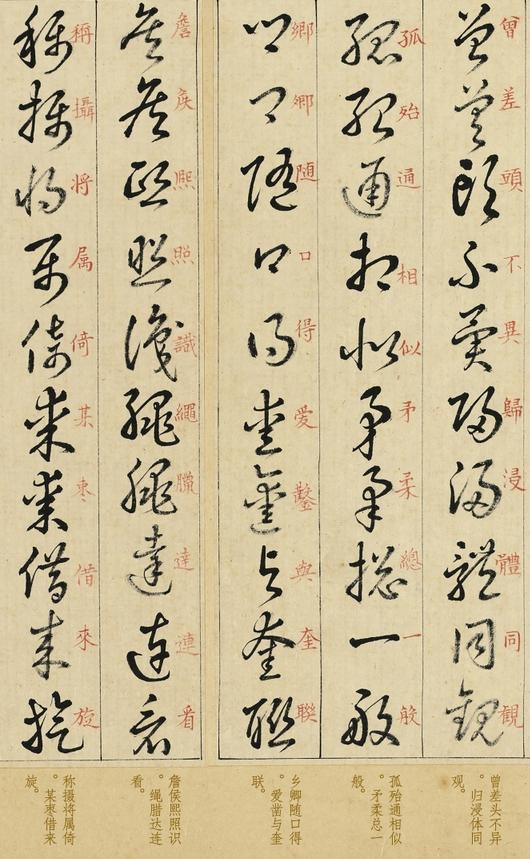 曾差頭不異歸浸體同觀
孤殆通相似矛柔總一般
鄉卿随口得爱鑿與奎聯
詹矦熙照識繩臘達連看
稱攝将属倚某枣借來旋
曾差头不异
。归浸体同
观。
孤殆通相似
。矛柔总一
般。
乡卿随口得
。爱凿与奎
联。
詹侯熙照识
。绳腊达连
看。
称摄将属倚
。某枣借来
旋。